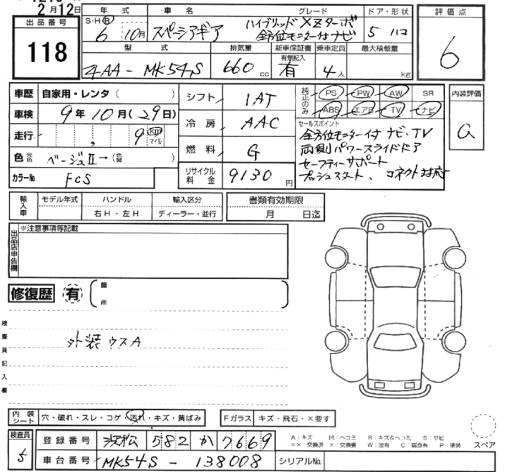 2月12日
出品番号 118
S・H・R 年式 6年10月
車名 スペーシアギア
グレード ハイブリッドXZターボ
全方位モニター付ナビ
ドア・形状 5 ハコ
評価点 6
型式 4AA-MK54S
排気量 660cc
新車保証書 有 有側記入
乗車定員 4人
最大積載量 kg
車歴 自家用・レンタ( )
車検 9年10月(29日)
走行 , 9 km マイル
色 ベージュII→( )
カラーNo FCS
シフト 1AT
冷房 AAC
燃料 G
リサイクル料金 9130円
純正のみ PS PW AW SR
ABS エアB TV ナビ
セールスポイント
全方位モニター付 ナビ・TV
両側パワースライドドア
セーフティサポート
プッシュスタート、コネクト対応
内装評価 a
輸入車 モデル年式 ハンドル 右H・左H 輸入区分 ディーラー・並行
書類有効期限 月 日迄
出品店申告欄 ※注意事項等記載
修復歴 有 箇所
検査員記入欄
外装ウスA
内装シート 穴・破れ・スレ・コゲ・汚れ・キズ・黄ばみ
Fガラス キズ・飛石・X要す
検査員 5
登録番号 浜松 582 か 7669
車台番号 MK54S-138008
シリアルNo.
A:キズ M:ヘコミ B:キズ&ヘコミ S:サビ
XX:交換済 X:要交換 W:波有 C:腐食有 P:塗装
スペア